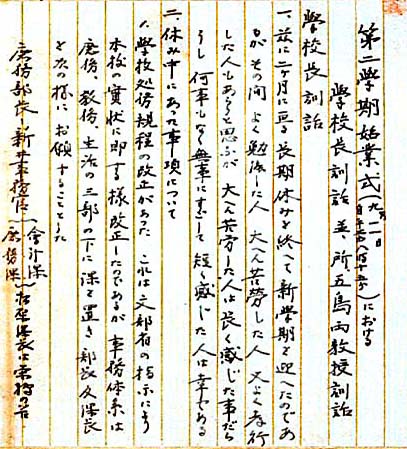 第二学期始業式(九月一日
自午前八時十五分)における
学校長訓話 並、所、五島両教授訓話
学校長訓話
一、茲に二ヶ月に亘る長期休みを終へて新学期を迎へたのであ
るがその間よく勉強した人 大へん苦労した人 又よく孝行
した人もあらうと思ふが 大へん苦労した人は長く感じた事だら
うし 何事もなく無事にすごして 短く感じた人は幸である
二、休み中にあった事項について
1、学校処務規程の改正があった これは文部省の指示により
本校の実状に即する様改正したのであるが 事務体系は
庶務、教務、生活の三部の下に課を置き部長及課長
を次の様にお願することゝした
庶務部長 新井事務官(会計課
庶務課)